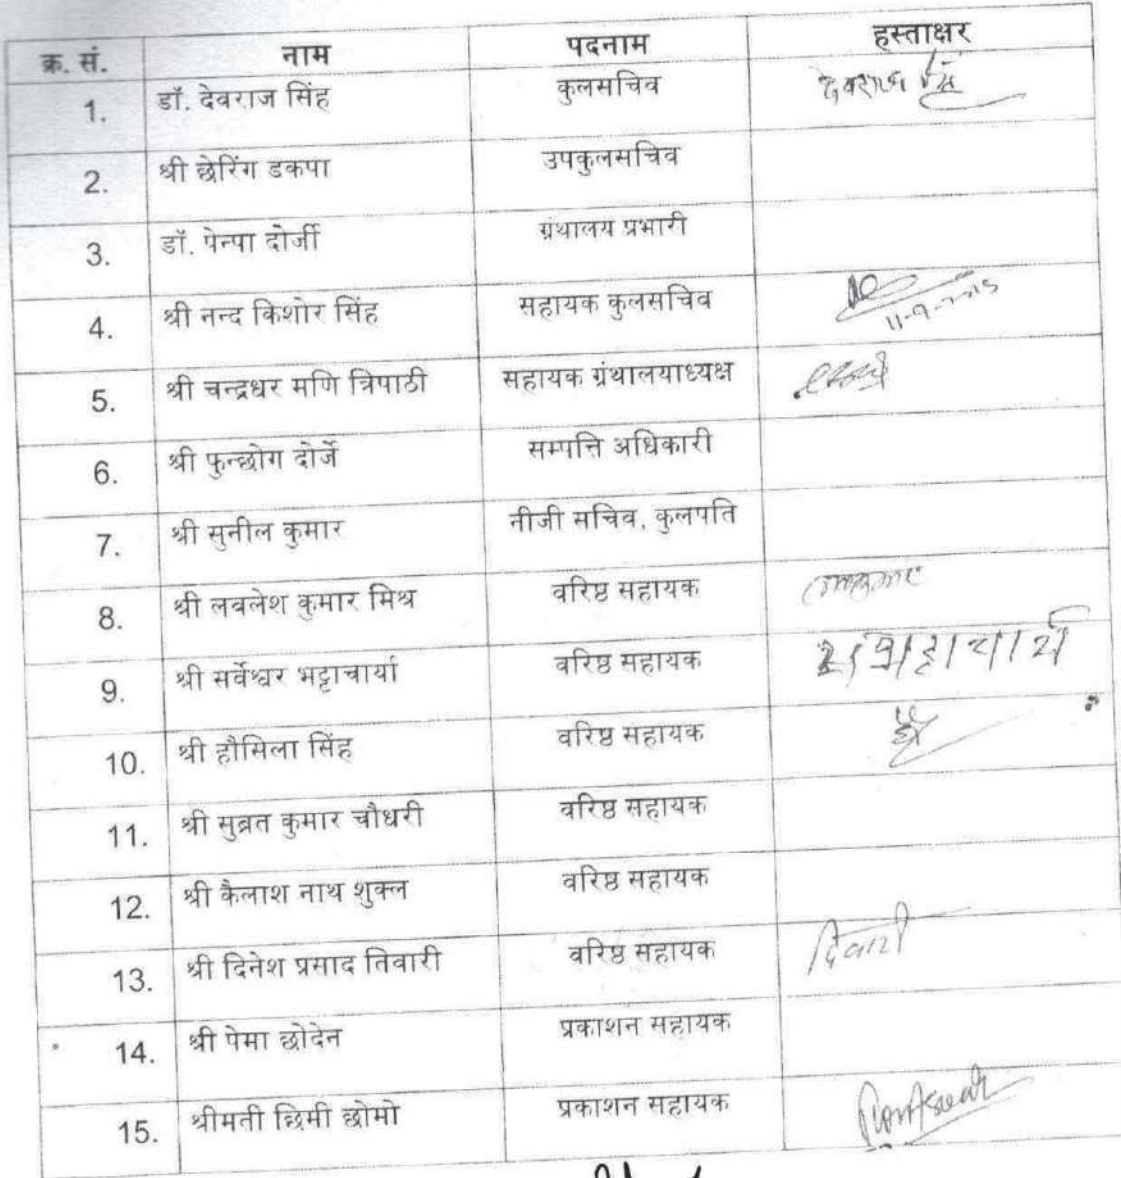 क्र. सं. नाम पदनाम हस्ताक्षर
1. डॉ. देवराज सिंह कुलसचिव देवराज सिंह
2. श्री छेरिंग डकपा उपकुलसचिव
3. डॉ. पेन्पा दोर्जी ग्रंथालय प्रभारी
4. श्री नन्द किशोर सिंह सहायक कुलसचिव
5. श्री चन्द्रधर मणि त्रिपाठी सहायक ग्रंथालयाध्यक्ष
6. श्री फुन्छोग दोर्जे सम्पत्ति अधिकारी
7. श्री सुनील कुमार नीजी सचिव, कुलपति
8. श्री लवलेश कुमार मिश्र वरिष्ठ सहायक
9. श्री सर्वेश्वर भट्टाचार्या वरिष्ठ सहायक
10. श्री हौसिला सिंह वरिष्ठ सहायक
11. श्री सुब्रत कुमार चौधरी वरिष्ठ सहायक
12. श्री कैलाश नाथ शुक्ल वरिष्ठ सहायक
13. श्री दिनेश प्रसाद तिवारी वरिष्ठ सहायक
14. श्री पेमा छोदेन प्रकाशन सहायक
15. श्रीमती छिमी छोमो प्रकाशन सहायक